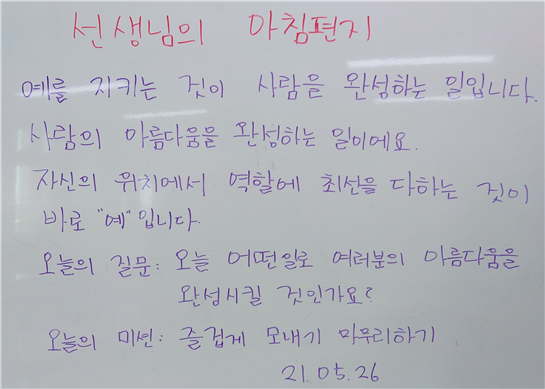 선생님의 아침편지
예를 지키는 것이 사람을 완성하는 일입니다.
사람의 아름다움을 완성하는 일이에요.
자신의 위치에서 역할에 최선을 다하는 것이
바로 "예"입니다.
오늘의 질문: 오늘 어떤일로 여러분의 아름다움을
완성시킬 것인가요?
오늘의 미션: 즐겁게 모내기 마무리하기
21.05.26